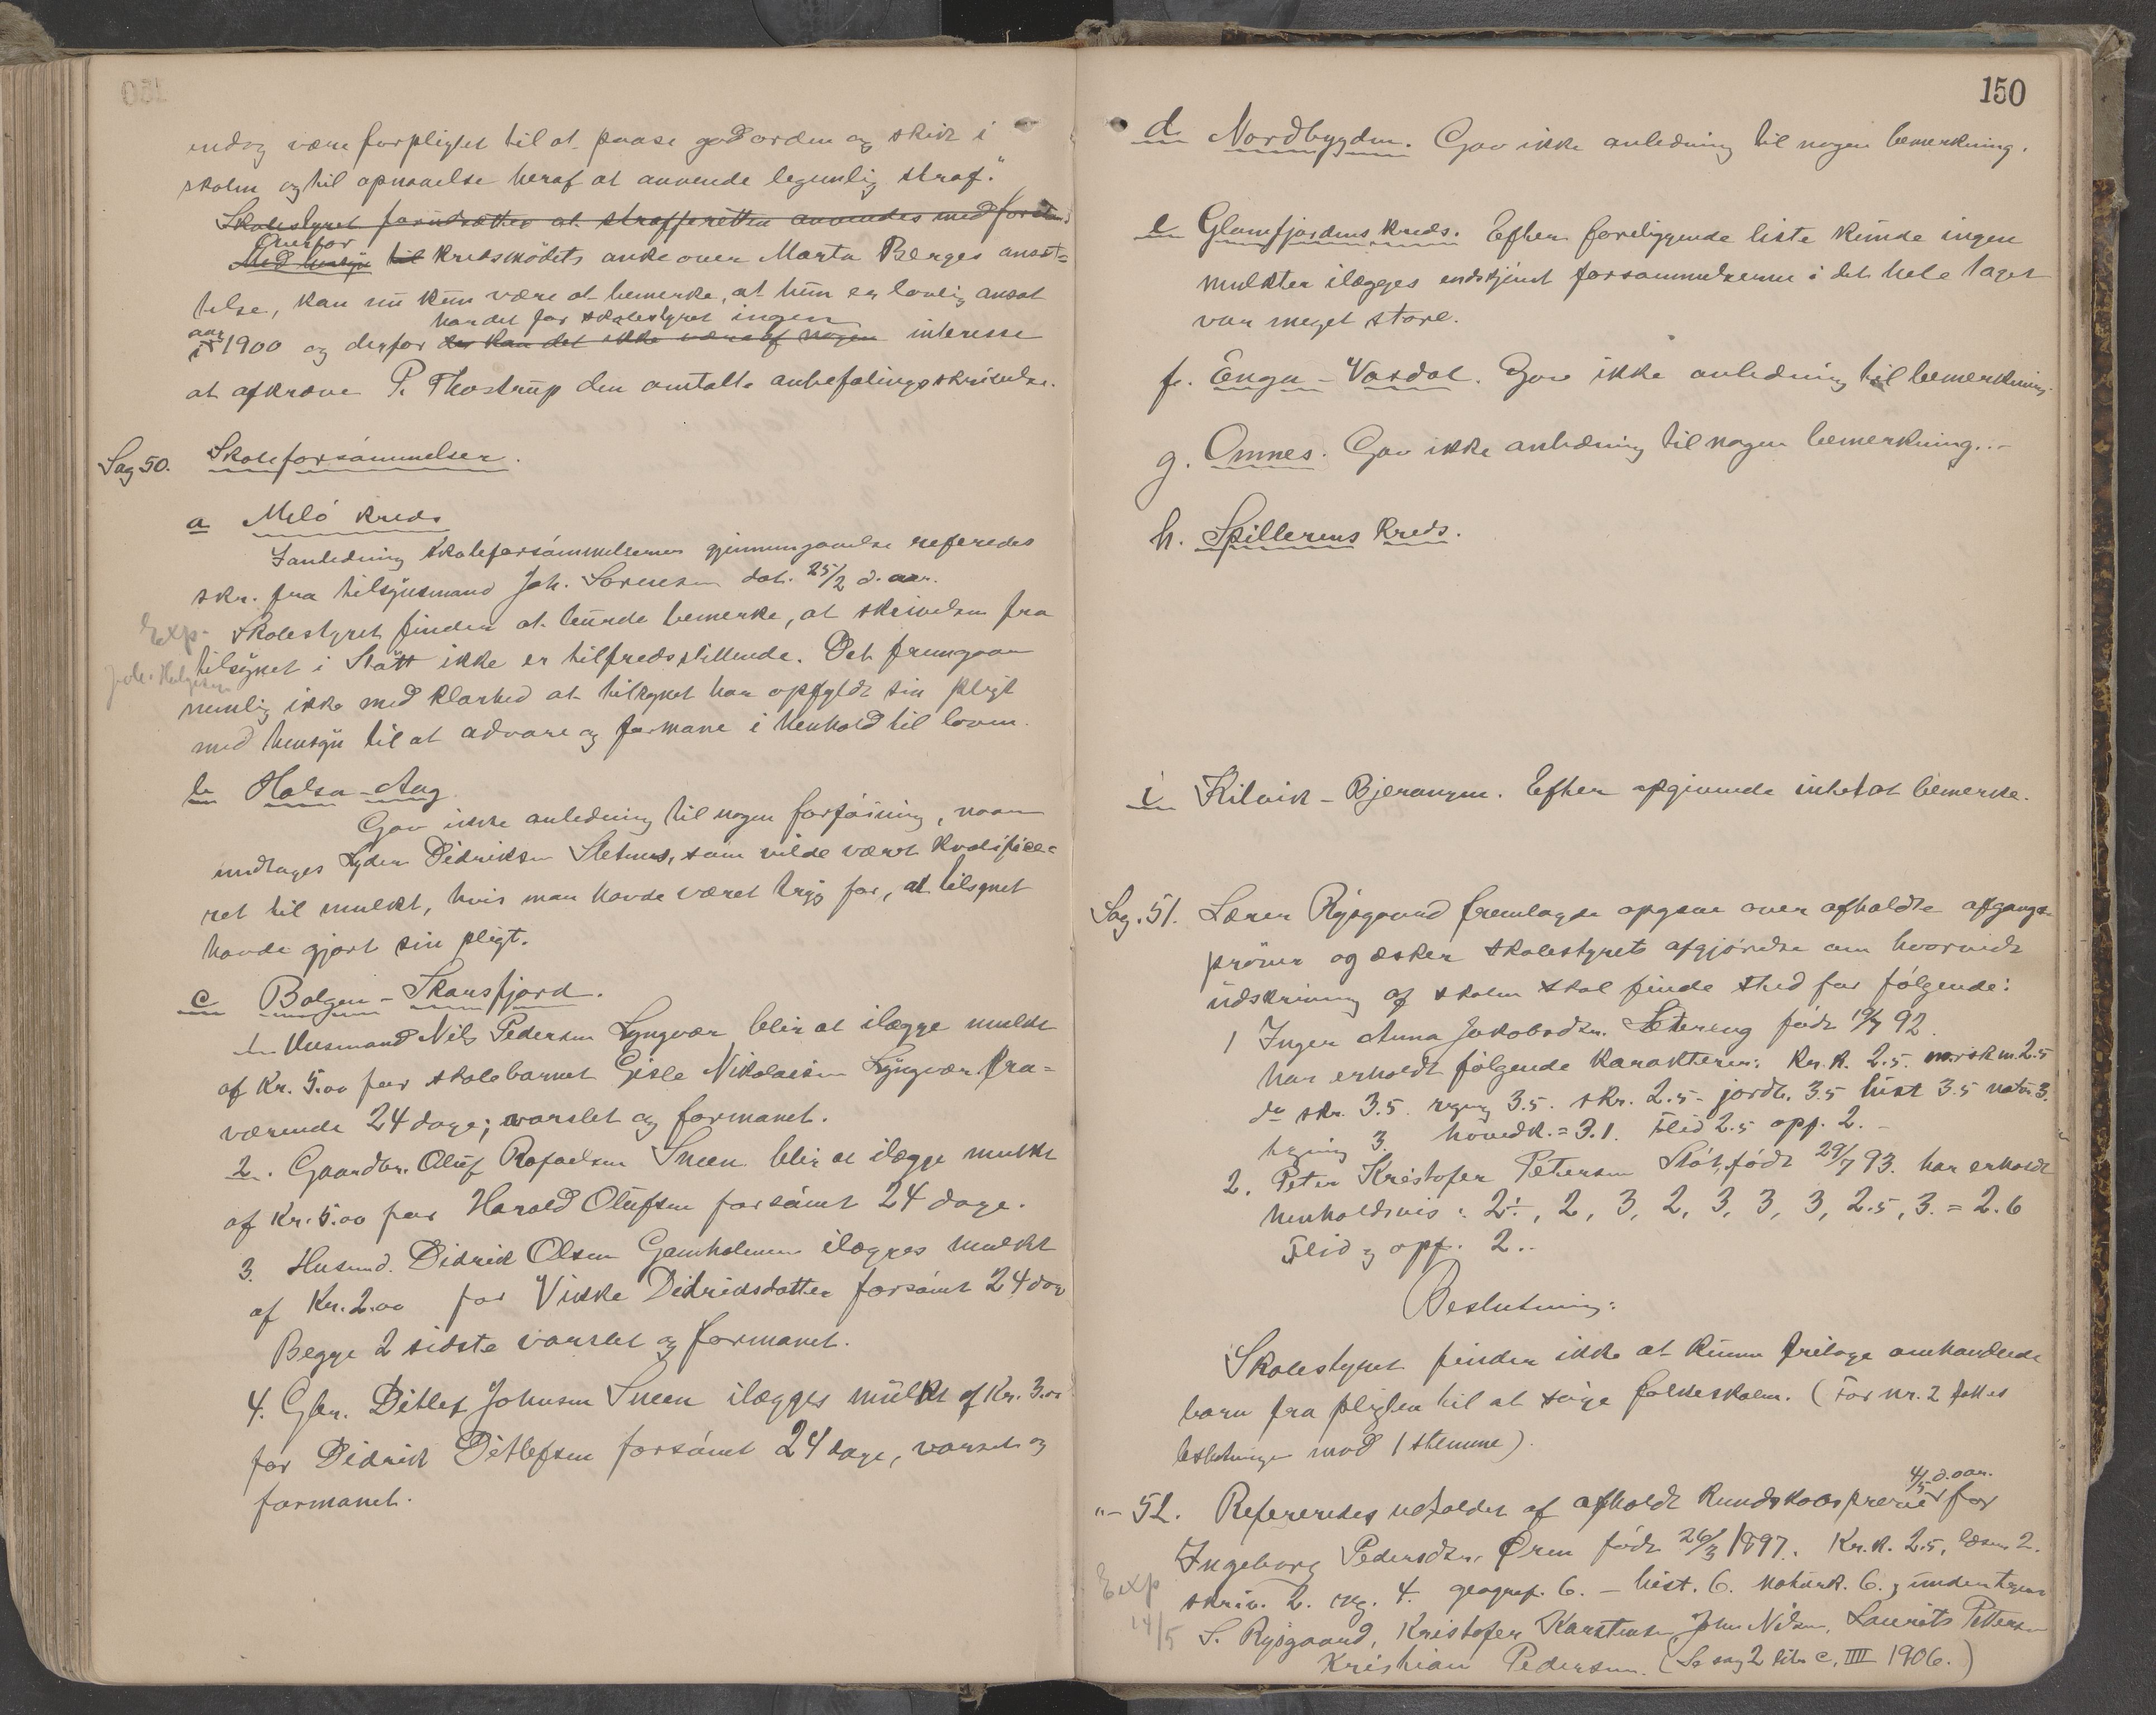 endog være forpligtet til at paase god orden og skik i
skolen og til opnaaelse heraf at anvende legemlig straf."
Skolestyret forudsætter at strafferetten anvendes med forstand
Overfor
Med hensyn til kredsmødets anke over Marta Berges ansæt=
telse, kan nu kun være at bemerke, at hun er lovlig ansat
har det for skolestyret ingen
aar
i 1900 og derfor der kan det ikke være af nogen interesse
at afkræve P. Thostrup den omtalte anbefalingsskrivelse.
Sag 50. Skoleforsømmelser.
a Melø kreds
I anledning skoleforsømmelsernes gjennemgaaelse referedes
skr. fra tilsynsmand Joh. Sørensen dat. 25/2 d. aar.
Exp. Skolestyret finder at burde bemerke, at skrivelsen fra
tilsynet i Støtt ikke er tilfredsstillende. Det fremgaar
Joh. Helgesen
nemlig ikke med klarhed at tilsynet har opfyldt sin pligt
med hensyn til at advare og formane i henhold til loven.
b Halsa-Aag.
Gav ikke anledning til nogen forføining, naar
undtages Lyder Didriksen Sletnes, som vilde været kvalifice=
ret til mulkt, hvis man havde været tryg for, at tilsynet
havde gjort sin pligt.
c Bolgen-Skarsfjord.
1. Husmand Nils Pedersen Lyngvær blir at ilægge mulkt
af Kr. 5.00 for skolebarnet Gisle Nikolaisen Lyngvær fra=
værende 24 dage; varslet og formanet.
2. Gaardbr. Oluf Rafaelsen Sneen blir at ilægge mulkt
af Kr. 5.00 for Harald Olufsen forsømt 24 dage.
3. Husmd. Didrik Olsen Gamholmen ilægges mulkt
af Kr. 2.00 for Vikke Didriksdatter forsømt 24 dage
Begge 2 sidste varslet og formanet.
4. Gbr. Ditlef Johnsen Sneen ilægges mulkt af Kr. 3.00
for Didrik Ditlefsen forsømt 24 dage, varslet og
formanet.
150
d Nordbygden. Gav ikke anledning til nogen bemerkning.
e Glomfjordens kreds. Efter foreliggende liste kunde ingen
mulkter ilægges endskjønt forsømmelserne i det hele taget
var meget store.
f. Enga-Vasdal. Gav ikke anledning til bemerkning.
g. Ømnes. Gav ikke anledning til nogen bemerkning.
h. Spillerens kreds.
i Kilvik-Bjerangen. Efter opgivende intet at bemerke.
Sag. 51. Lærer Rysgaard fremlagde opgave over afholdte afgangs-
prøver og æsker skolestyrets afgjørelse om hvorvidt
udskrivning af skolen skal finde sted for følgende:
1 Inger Anna Jakobsdtr. Setereng født 19/7 92.
har erholdt følgende karakterer: Kr.k. 2.5. norsk m. 2.5
do skr. 3.5. regng 3.5. skr. 2.5- jordb. 3.5 hist 3.5 natur 3.
tegning 3. hovedk. = 3.1. Flid 2.5 opf. 2.-
2. Peter Kristofer Petersen Støt, født 29/7 93. har erholdt
henholdsvis: 2÷, 2, 3, 2, 3, 3, 3, 2.5, 3. = 2.6
Flid og opf. 2..
Beslutning:
Skolestyret finder ikke at kunne fritage omhandlede
barn fra pligten til at søge folkeskolen. (For nr. 2 fattes
beslutningen mod 1 stemme).
4/5 d. aar.
"- 52. Refereredes udfaldet af afholdt kundskabsprøve for
Ingeborg Pedersdtr. Øren født 26/3 1897. Kr.k. 2.5, læsn. 2.
Exp
skriv. 2. reg. 4. geograf. 6. - hist. 6. naturk. 6. undertegnet
14/5
S. Rysgaard, Kristofer Karstensen, John Nilsen, Laurits Pettersen
Kristian Pedersen. (Se sag 2 litr c, IIII 1906.)